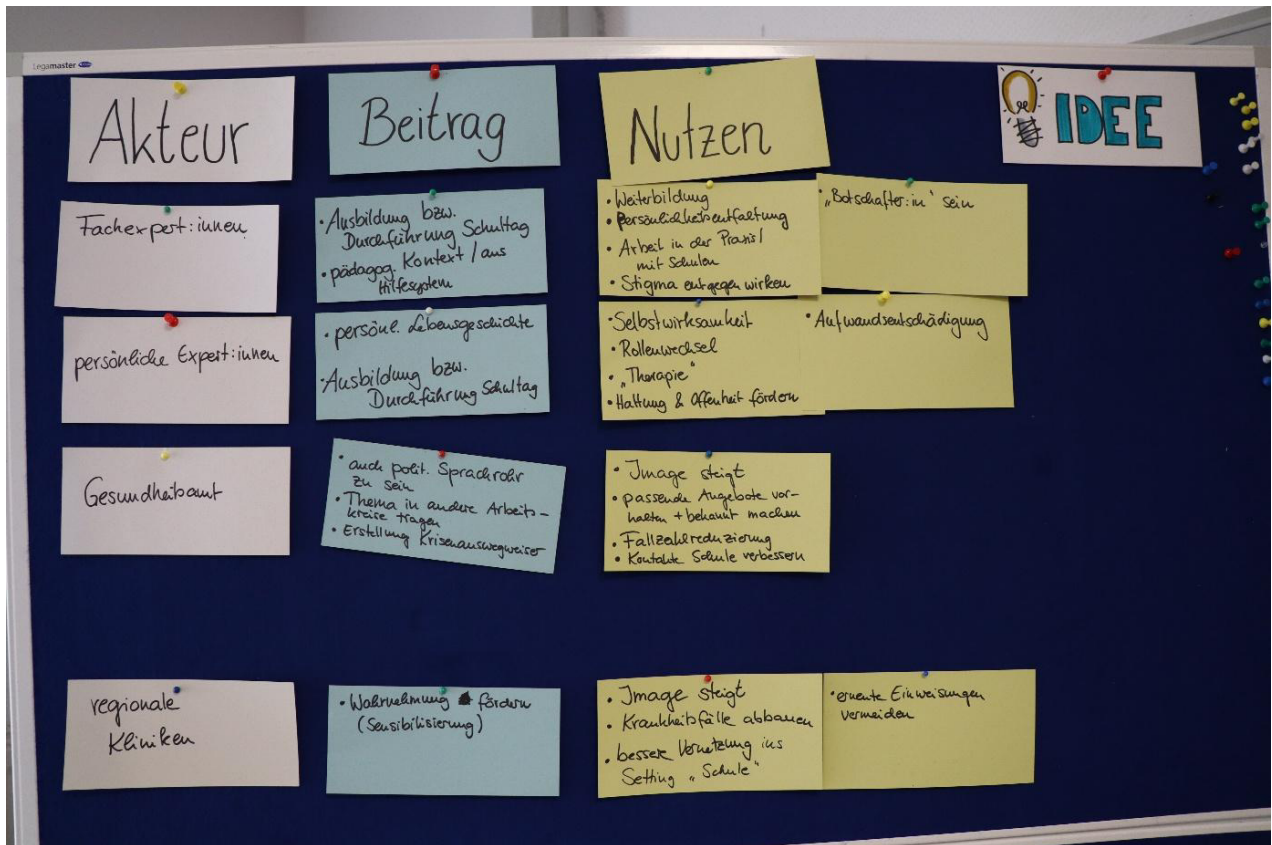 Legamaster
Akteur
Beitrag
Nutzen
IDEE
Fachexpert:innen
• Ausbildung bzw.
Durchführung Schultag
• pädagog. Kontext / aus
Hilfesystem
• Weiterbildung
• Persönlichkeitsentfaltung
• Arbeit in der Praxis/
mit Schulen
• Stigma entgegen wirken
• „Botschafter:in“ sein
persönliche Expert:innen
• persönl. Lebensgeschichte
• Ausbildung bzw.
Durchführung Schultag
• Selbstwirksamkeit
• Rollenwechsel
• „Therapie“
• Haltung & Offenheit fördern
• Aufwandsentschädigung
Gesundheitsamt
• auch polit. Sprachrohr
zu sein
• Thema in andere Arbeits-
kreise tragen
• Erstellung Krisenauswegweiser
• Image steigt
• passende Angebote vor-
halten + bekannt machen
• Fallzahlreduzierung
• Kontakte Schule verbessern
regionale
Kliniken
• Wahrnehmung fördern
(Sensibilisierung)
• Image steigt
• Krankheitsfälle abbauen
• bessere Vernetzung ins
Setting „Schule“
• erneute Einweisungen
vermeiden